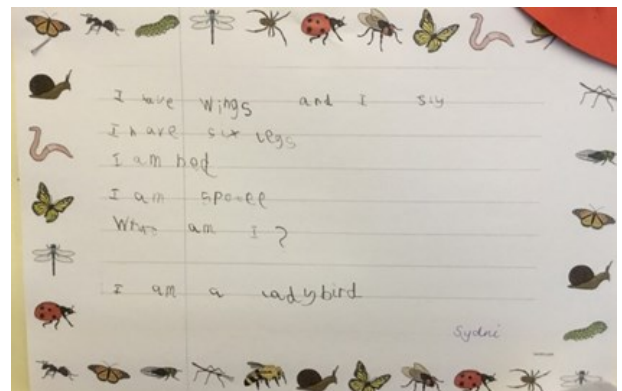 I have wings and I siy
I have six legs
I am hed
I am spoeee
What am I ?
I am a ladybird
Sydni